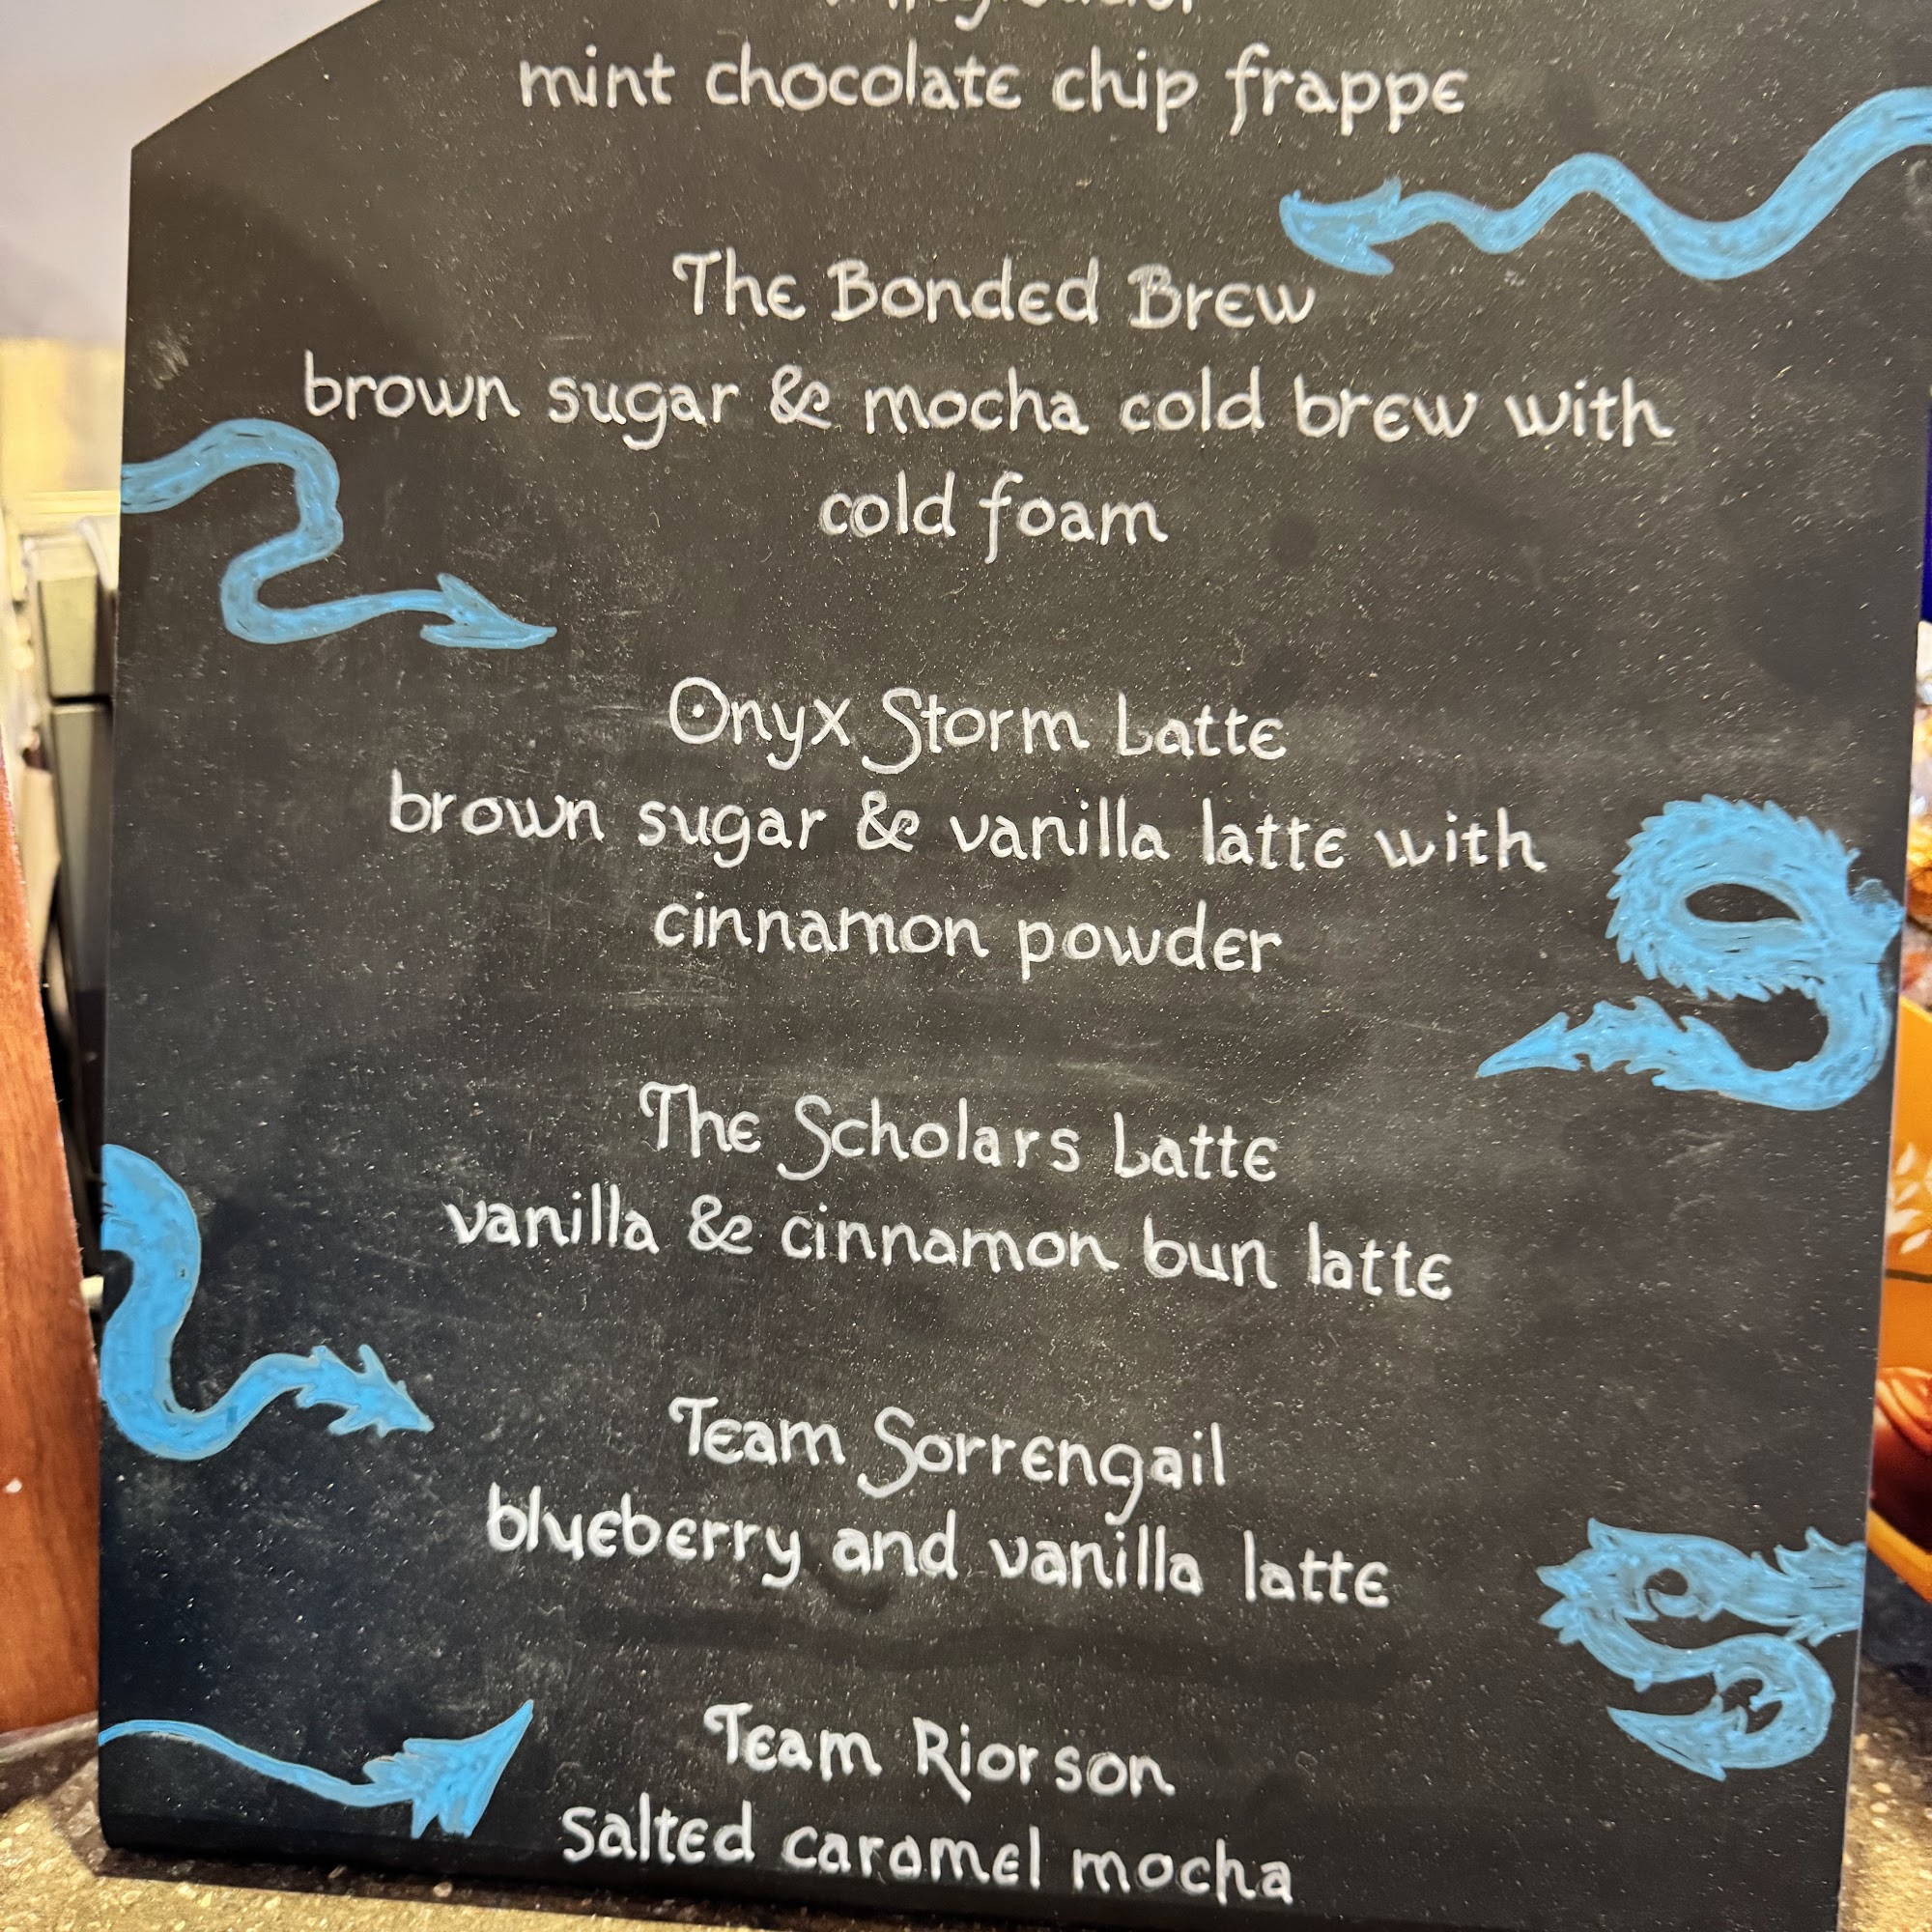 mint chocolate chip frappe
The Bonded Brew
brown sugar & mocha cold brew with
cold foam
Onyx Storm Latte
brown sugar & vanilla latte with
cinnamon powder
The Scholars Latte
vanilla & cinnamon bun latte
Team Sorrengail
blueberry and vanilla latte
Team Riorson
salted caramel mocha